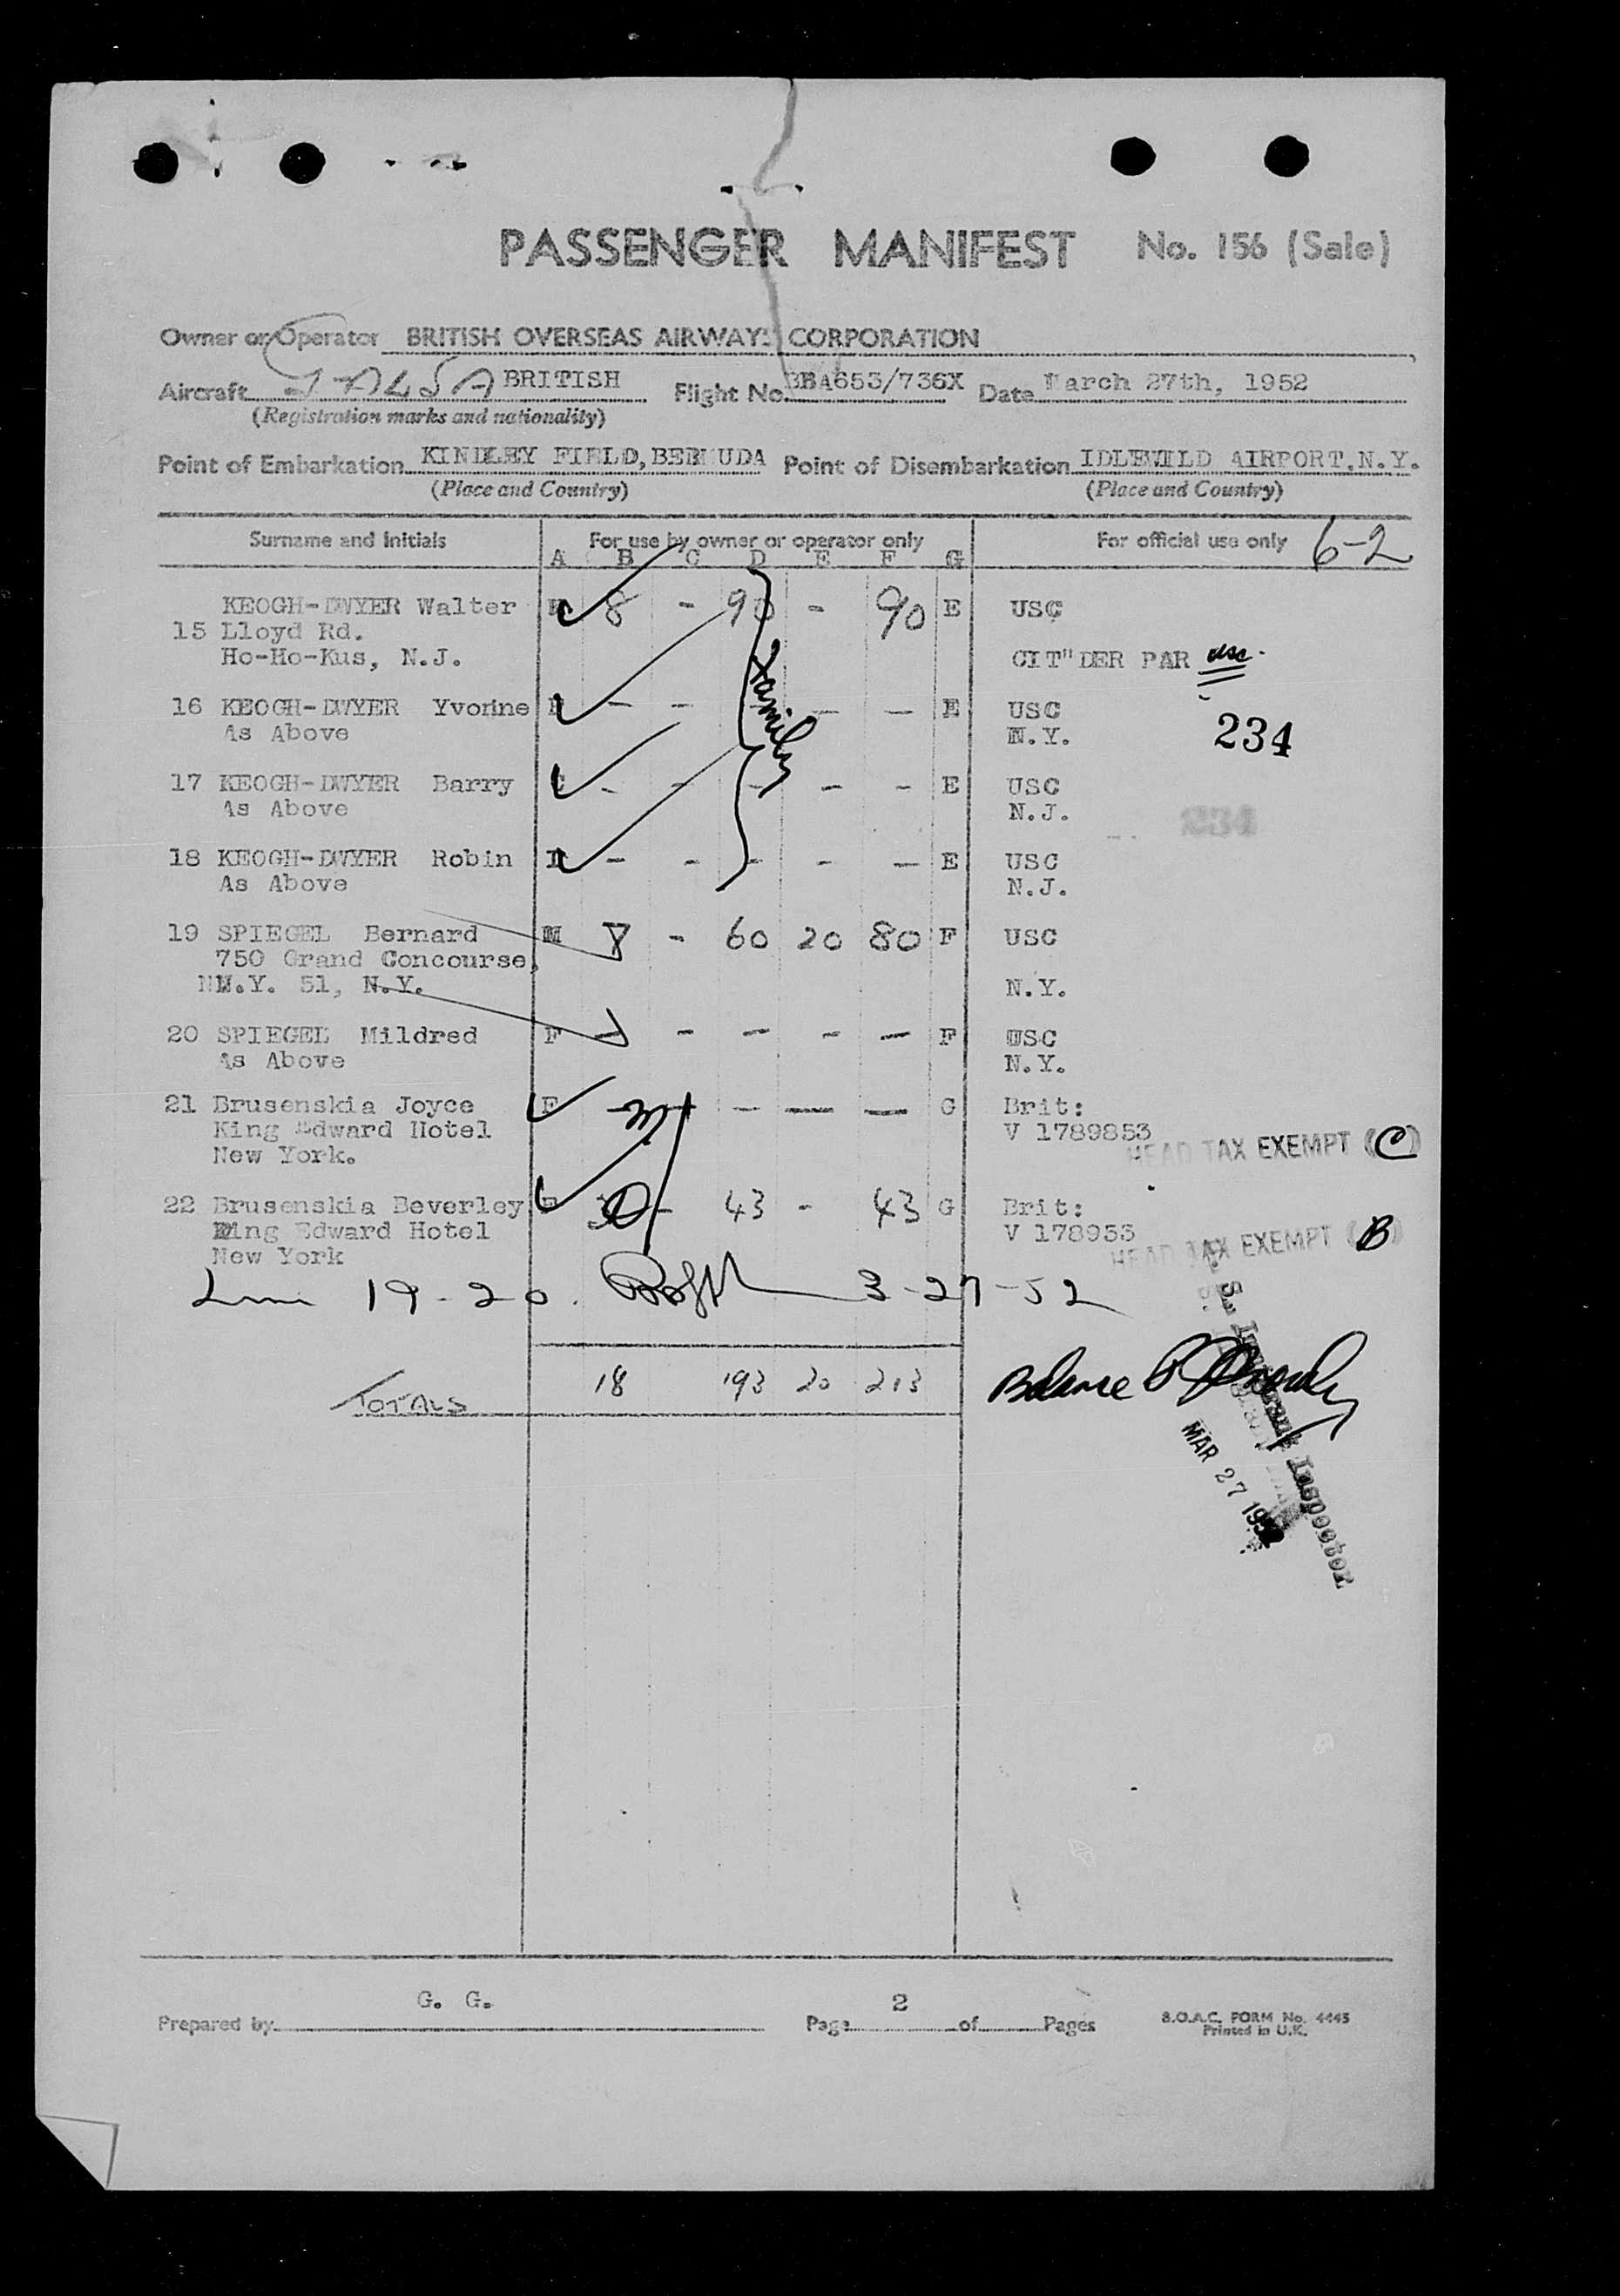 PASSENGER MANIFEST No. 156 (Sale)
Owner or Operator BRITISH OVERSEAS AIRWAYS CORPORATION
Aircraft BRITISH Flight No. BBA653/736X Date March 27th, 1952
(Registration marks and nationality)
Point of Embarkation KINDLEY FIELD, BERMUDA Point of Disembarkation IDLEWILD AIRPORT, N.Y.
(Place and Country) (Place and Country)
Surname and Initials For use by owner or operator only For official use only 6-2
A B C D E F G
KEOGH-DWYER Walter 8 - 90 - 90 E USC
15 Lloyd Rd.
Ho-Ho-Kus, N.J. CIT" DER PAR usc.
Family
16 KEOGH-DWYER Yvonne - - - - - E USC
As Above N.Y. 234
17 KEOGH-DWYER Barry - - - - - E USC
As Above N.J. 234
18 KEOGH-DWYER Robin - - - - - E USC
As Above N.J.
19 SPIEGEL Bernard M - 60 20 80 F USC
750 Grand Concourse,
N.Y. 51, N.Y. N.Y.
20 SPIEGEL Mildred F - - - - - F USC
As Above N.Y.
21 Brusenskia Joyce F - - - G Brit:
King Edward Hotel V 1789853
New York. HEAD TAX EXEMPT (C)
22 Brusenskia Beverley F - 43 - 43 G Brit:
King Edward Hotel V 178953
New York HEAD TAX EXEMPT (B)
19-20. 3-27-52
TOTALS 18 193 20 213 Balance
U. S. Immigrant Inspector
MAR 27 1952
G. G. 2
Prepared by Page of Pages B.O.A.C. FORM No. 4445
Printed in U.K.